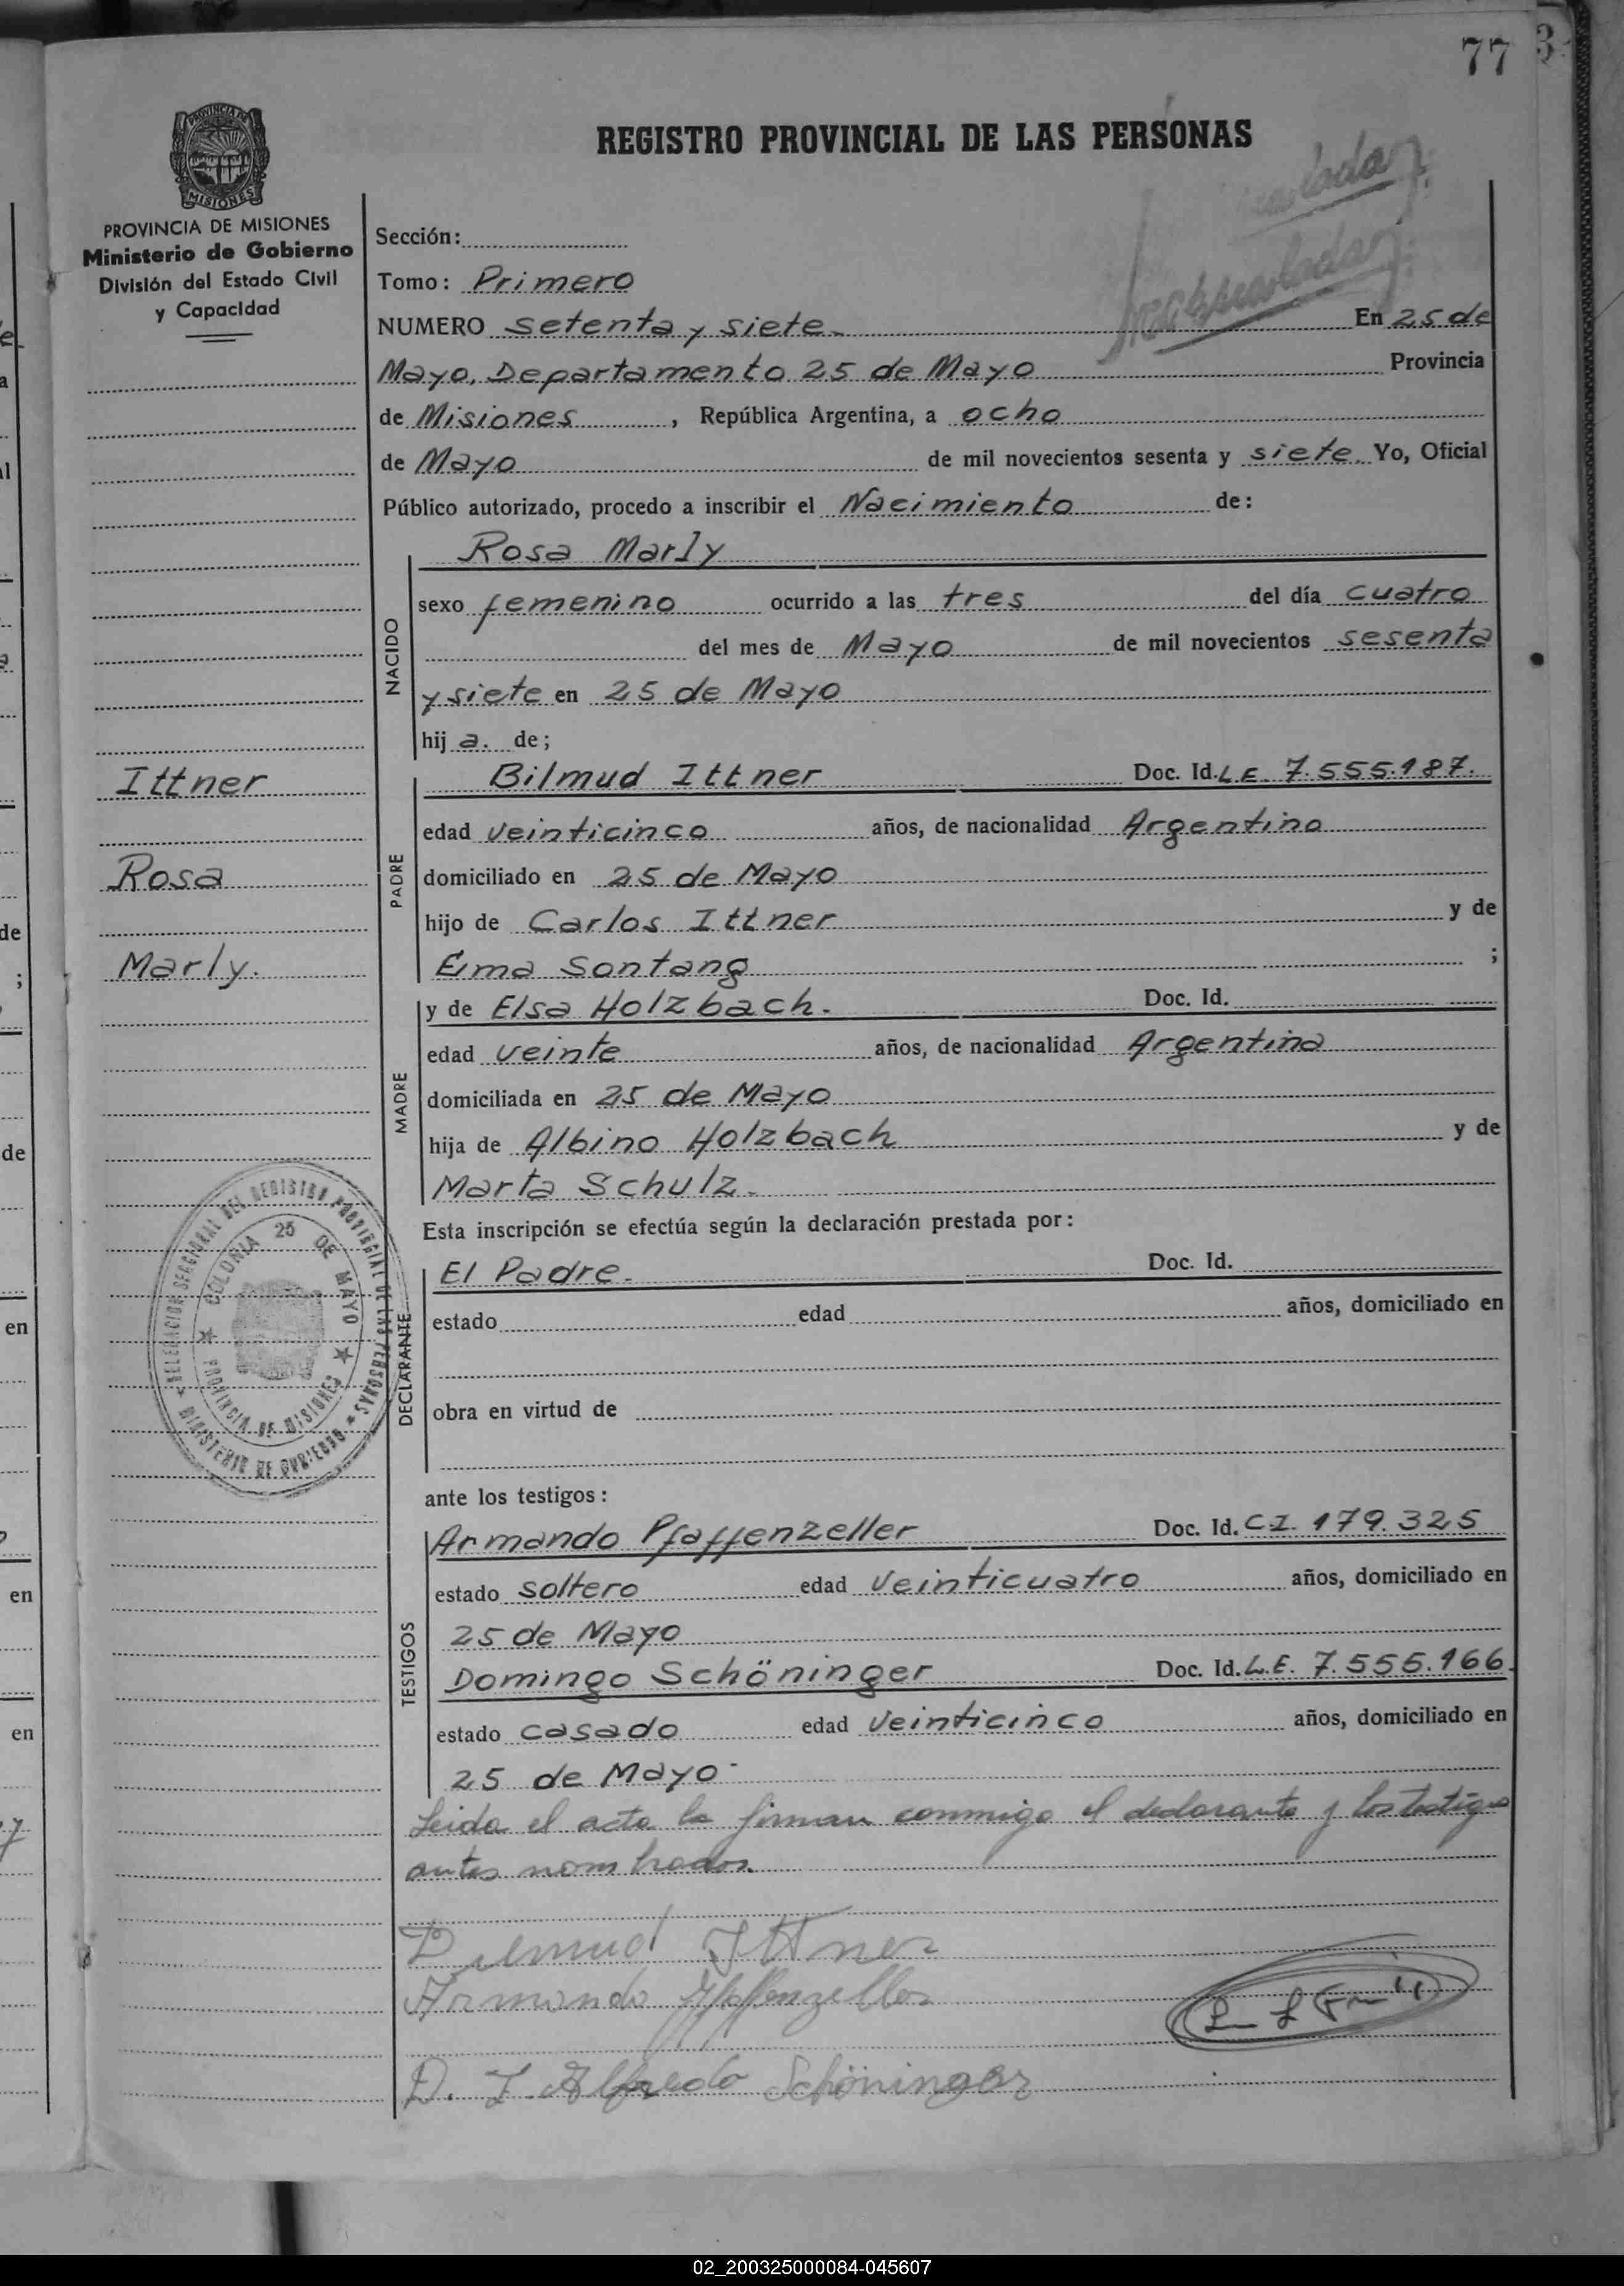 77 3
REGISTRO PROVINCIAL DE LAS PERSONAS
PROVINCIA DE
MISIONES
PROVINCIA DE MISIONES
Ministerio de Gobierno
División del Estado Civil
y Capacidad
Sección:
Tomo: Primero
NUMERO setenta y siete. En 25 de
Mayo, Departamento 25 de Mayo Provincia
de Misiones, República Argentina, a ocho
de Mayo de mil novecientos sesenta y siete. Yo, Oficial
Público autorizado, procedo a inscribir el Nacimiento de:
Rosa Marly
NACIDO
sexo femenino ocurrido a las tres del día cuatro
del mes de Mayo de mil novecientos sesenta
y siete en 25 de Mayo
hij a. de;
Ittner
Rosa
Marly.
PADRE
Bilmud Ittner Doc. Id. L.E. 7.555.187.
edad veinticinco años, de nacionalidad Argentino
domiciliado en 25 de Mayo
hijo de Carlos Ittner y de
Ema Sontang ;
MADRE
y de Elsa Holzbach. Doc. Id.
edad veinte años, de nacionalidad Argentina
domiciliada en 25 de Mayo
hija de Albino Holzbach y de
Marta Schulz.
Esta inscripción se efectúa según la declaración prestada por:
DECLARANTE
El Padre. Doc. Id.
estado edad años, domiciliado en
obra en virtud de
DELEGACION SECCIONAL DEL REGISTRO PROVINCIAL DE LAS PERSONAS
MINISTERIO DE GOBIERNO
COLONIA 25 DE MAYO
PROVINCIA DE MISIONES
ante los testigos:
TESTIGOS
Armando Pfaffenzeller Doc. Id. C.I. 179.325
estado soltero edad veinticuatro años, domiciliado en
25 de Mayo
Domingo Schöninger Doc. Id. L.E. 7.555.166.
estado casado edad veinticinco años, domiciliado en
25 de Mayo.
Leida el acta la firman conmigo el declarante y los testigos
antes nombrados.
Ittner
Armando Pfaffenzeller
D. I. Alfredo Schöninger
02_200325000084-045607